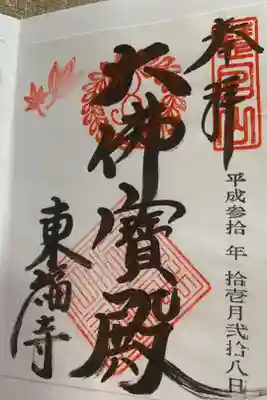 奉拝
平成参拾年拾壱月弐拾八日
大佛寳殿
東福寺